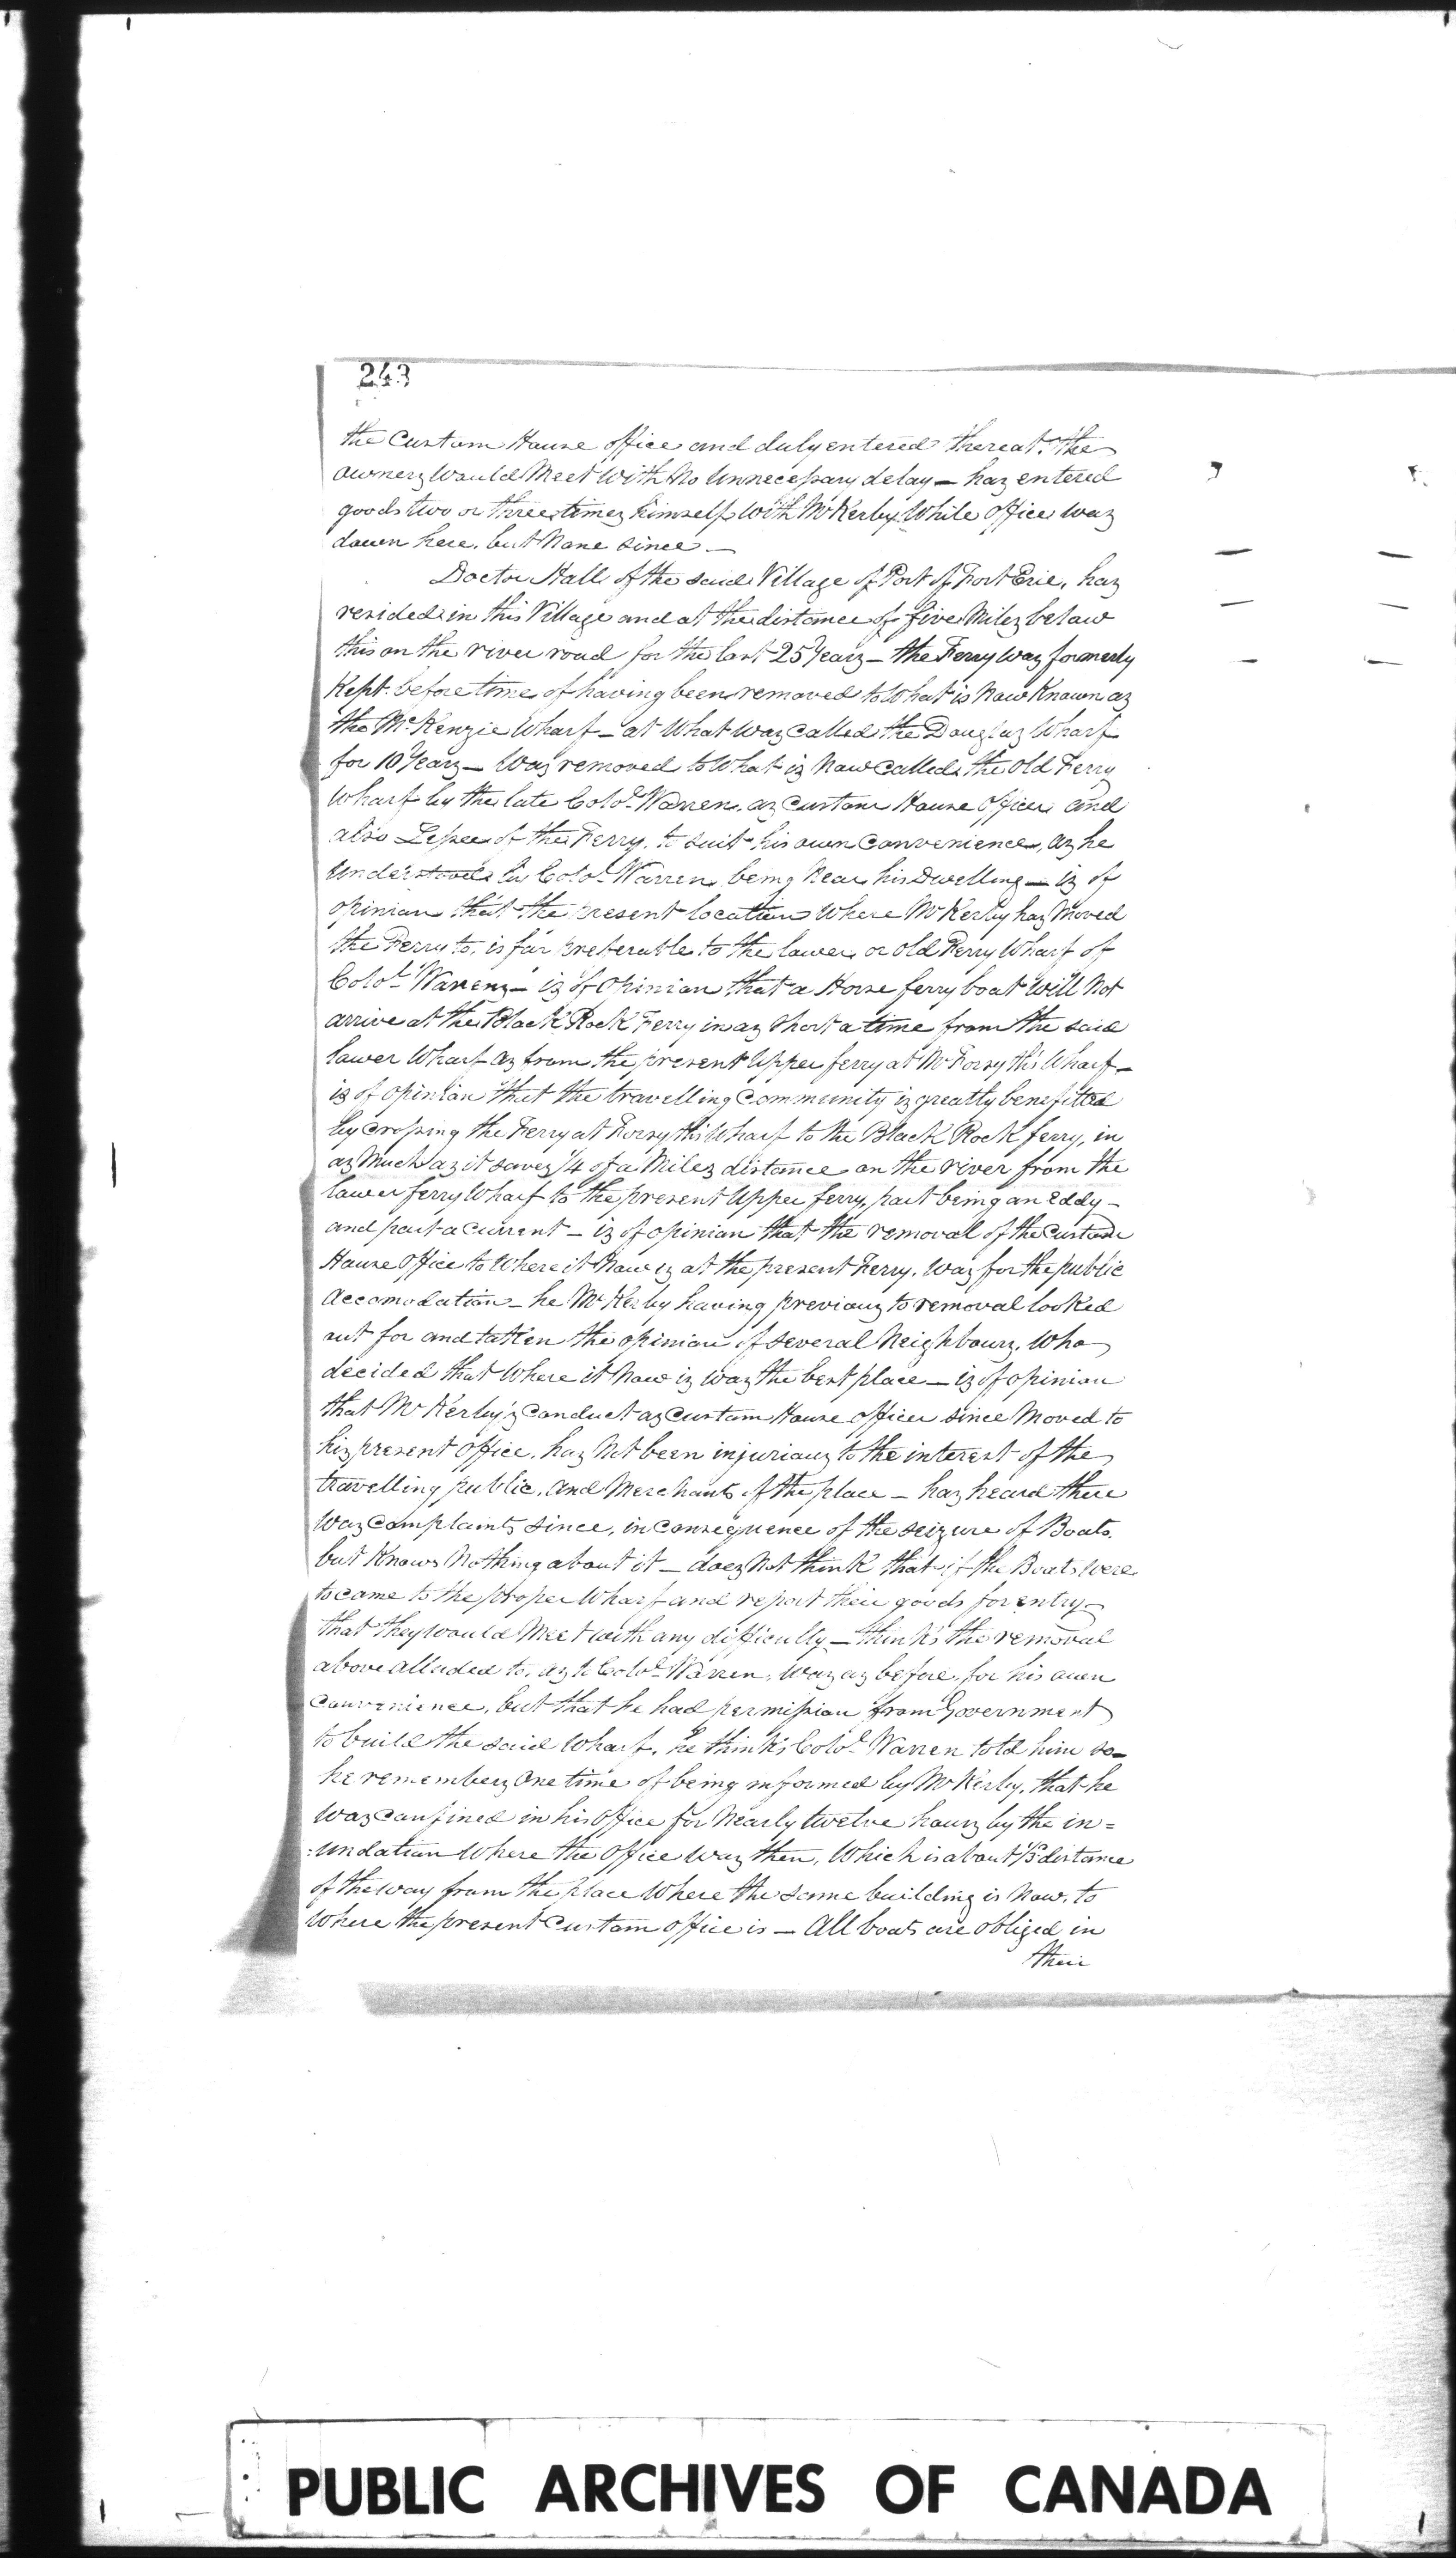 243
the Custom House office and duly entered thereat, the
owners would Meet With No Unnecessary delay — has entered
goods two or three times himself With Mr Kerby While office was
down here, but None since —
Doctor Hall of the said Village of Port of Fort Erie, has
resided in this Village and at the distance of five Miles below
this on the river road for the last 25 Years — the Ferry was formerly
Kept before time of having been removed to What is Now Known as
the McKenzie Wharf — at What was called the Douglas Wharf
for 10 Years — Was removed to What is Now called the Old Ferry
Wharf by the late Colol. Warren, as Custom House Officer and
also Lessee of the Ferry, to suit his own Convenience, as he
Understood by Colol. Warren, being Near his Dwelling — is of
opinion that the present location Where Mr Kerby has Moved
the Ferry to, is far preferable to the lower, or old Ferry Wharf of
Colol. Warrens — is of Opinion that a Horse ferry boat Will Not
arrive at the Black Rock Ferry in as Short a time from the said
lower Wharf as from the present Upper ferry at Mr Forsyth's Wharf —
is of opinion that the travelling Community is greatly benefitted
by Crossing the Ferry at Forsyths Wharf to the Black Rock ferry, in
as Much as it saves 1/4 of a Miles distance on the river from the
lower ferry Wharf to the present Upper ferry, part being an Eddy —
and part a Current — is of opinion that the removal of the Custom
House Office to Where it Now is at the present Ferry, Was for the public
Accomodation — he Mr Kerby having previous to removal looked
out for and tatten the opinion of several Neighbours, Who
decided that Where it Now is was the best place — is of opinion
that Mr Kerby's Conduct as Custom House officer since Moved to
his present Office, has Not been injurious to the interest of the
travelling public, and Merchants of the place — has heard there
Was Complaints since, in Consequence of the seizure of Boats,
but Knows Nothing about it — does Not think that if the Boats Were
to come to the proper Wharf and report their goods for entry —
that they would Meet with any difficulty — think's the removal
above alluded to, as to Colol. Warren, Was as before, for his own
Convenience, but that he had permission from Government
to build the said Wharf, he think's Colol. Warren told him so —
he remembers One time of being informed by Mr Kerby, that he
Was Confined in his Office for Nearly twelve hours by the in=
:undation Where the Office Was then, Which is about 1/3 distance
of the way from the place Where the same building is Now, to
Where the present Custom office is — All boats are obliged in
their
PUBLIC ARCHIVES OF CANADA